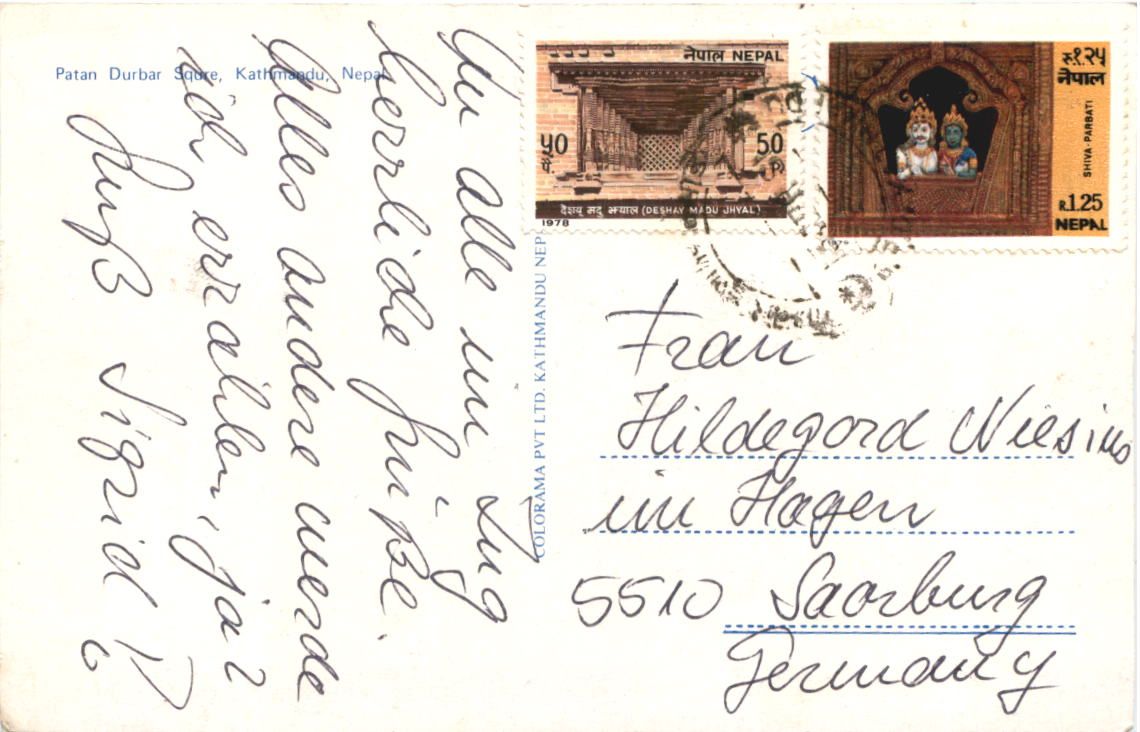 Patan Durbar Squre, Kathmandu, Nepal
An alle im Zug
herrliche Grüße.
Alles andere werde
ich erzählen, ja?
Gruß Sigrid
COLORAMA PVT LTD. KATHMANDU NEP
नेपाल NEPAL
५० 50
प. P.
देशय् मदु झ्याल (DESHAY MADU JHYAL)
1978
रु १.२५
नेपाल
SHIVA-PARBATI
R 1.25
NEPAL
Frau
Hildegard
im Hagen
5510 Saarburg
Germany